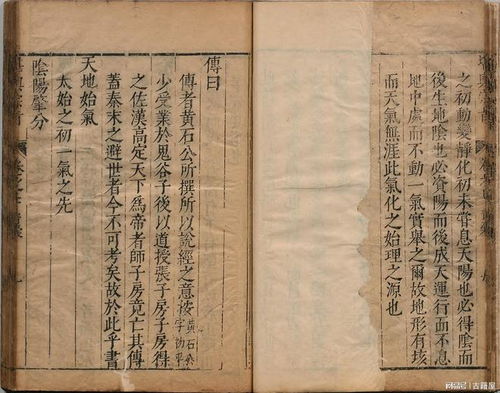 之初動變靜化初未嘗息天陽也必得陰而
後生地陰也必資陽而後成天運行而不息
地中處而不動一氣實舉之爾故地形有垓
而天氣無涯此氣化之始理之源也
傳曰
傳者黃石公所撰所以說經之意按黃石公
字初平
少受業於鬼谷子後以道授張子房子房得
之佐漢高定天下為帝者師子房竟亡其傳
蓋秦末之避世者今不可考矣故於此乎書
天地始氣
太始之初一氣之先
陰陽肇分
古籍屋